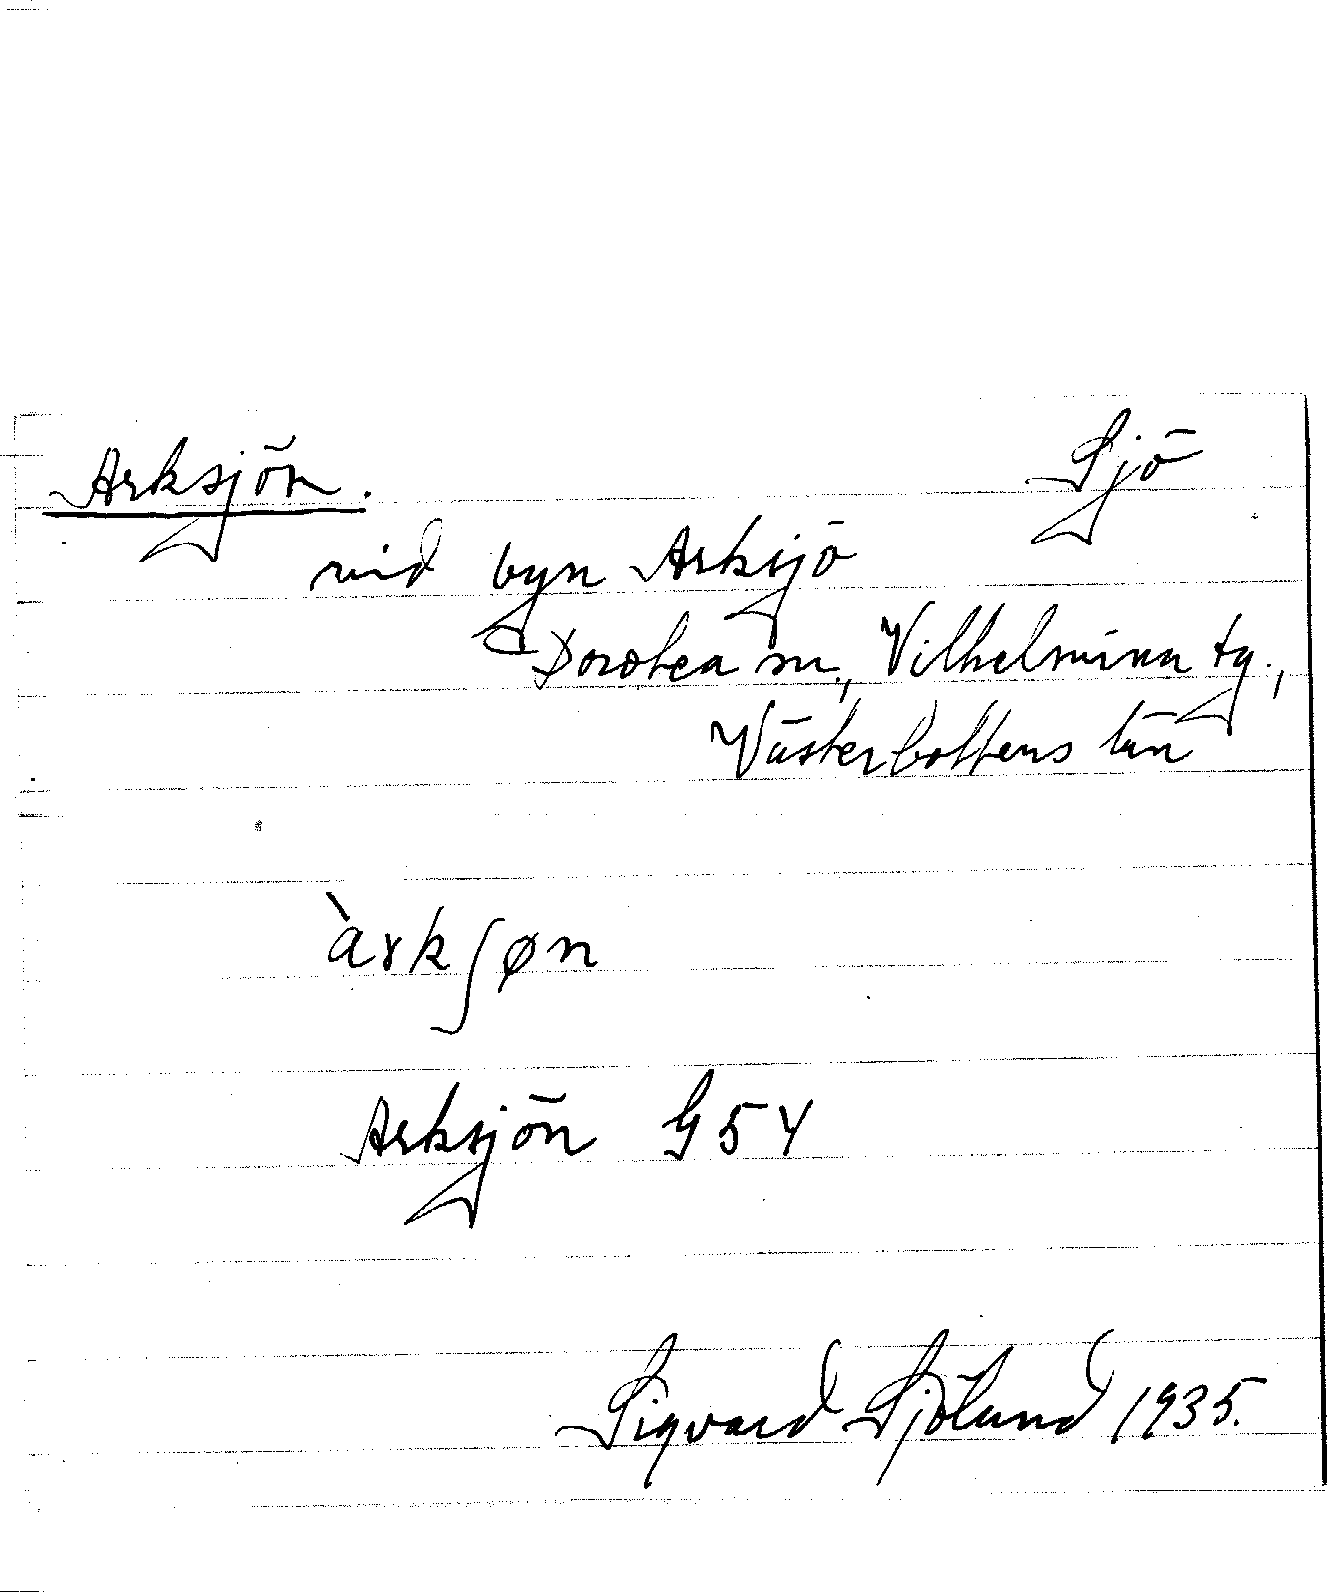 Arksjön. Sjö
vid byn Arksjö
Dorotea sn., Vilhelmina tg.,
Västerbottens län
àrkʃøn
Arksjön G54
Sigvard Sjölund 1935.